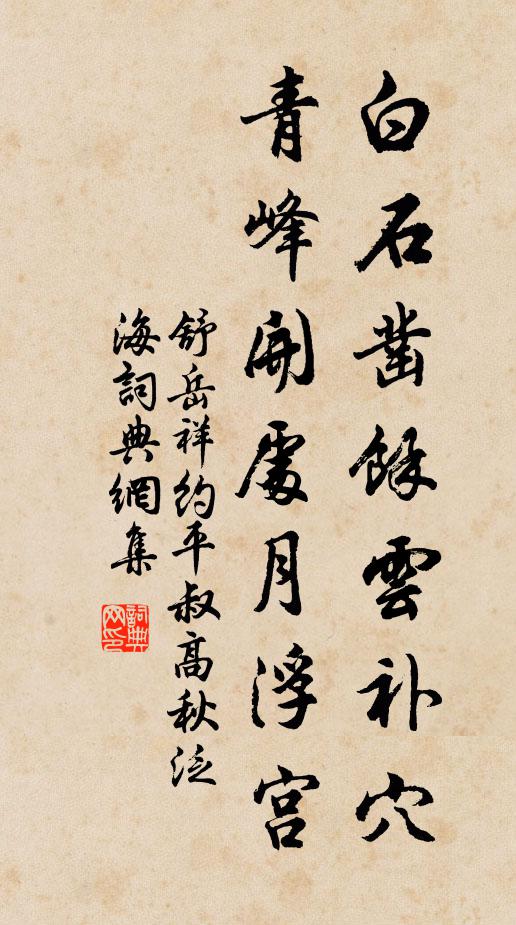 白石凿餘雲补穴
青峰開處月浮宫
舒岳祥约平叔高秋泛
海詞典網集
詞典網印